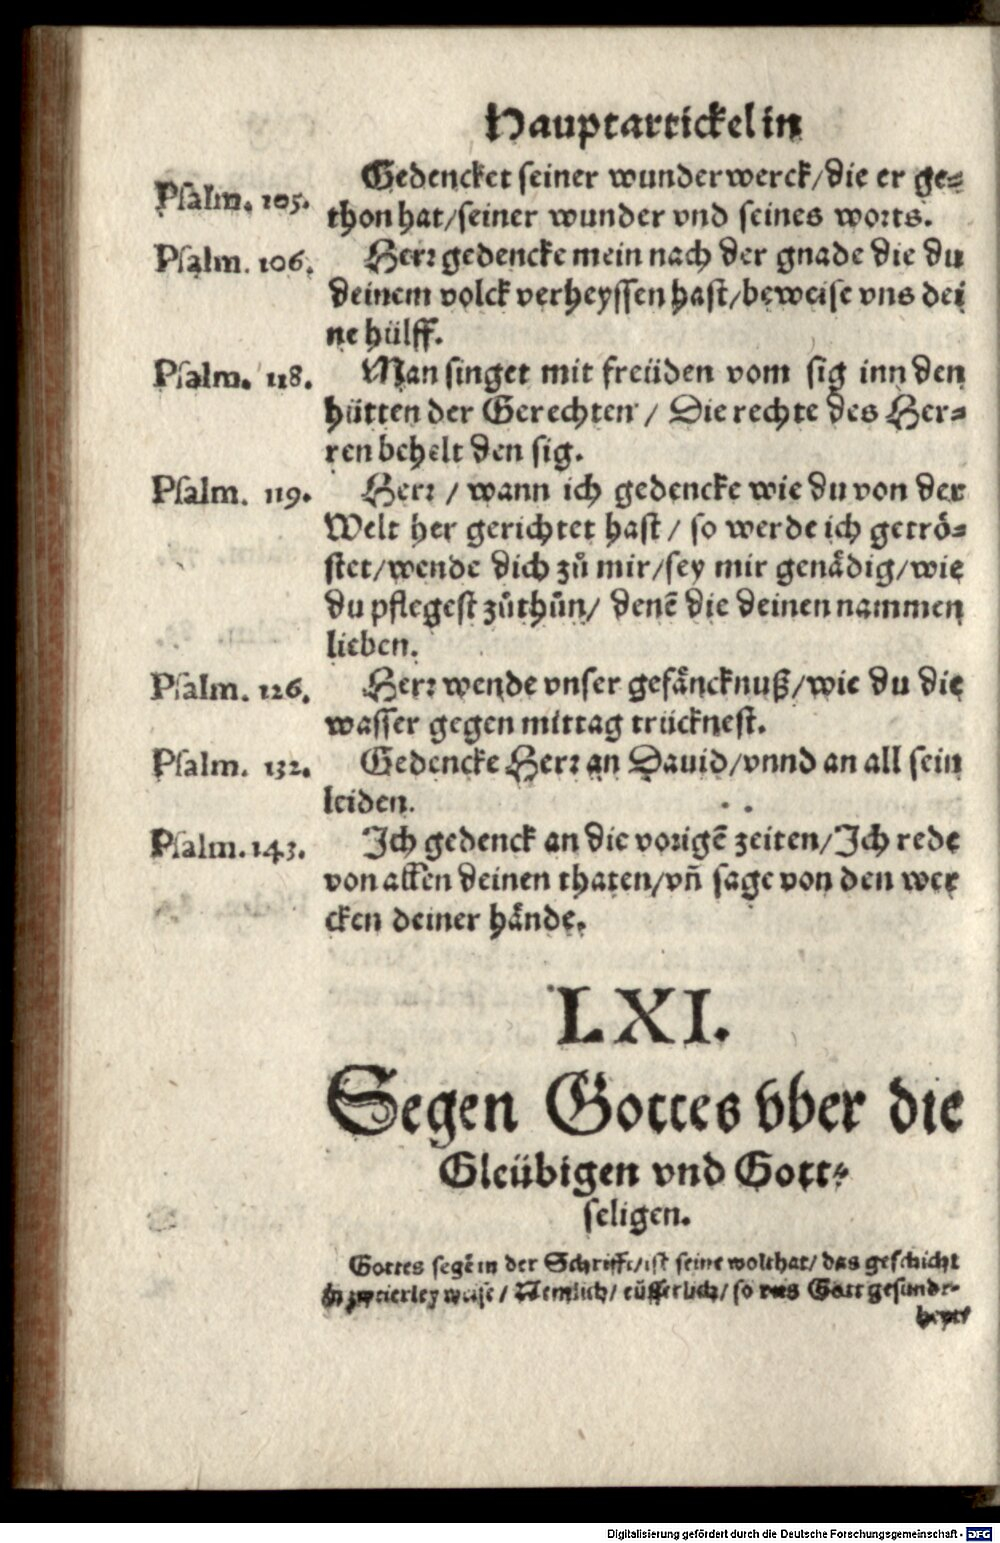 Hauptartickel in
Psalm. 105. Gedencket seiner wunderwerck/die er ge-
thon hat/seiner wunder vnd seines worts.
Psalm. 106. Herr gedencke mein nach der gnade die du
deinem volck verheyssen hast/beweise vns dei
ne hülff.
Psalm. 118. Man singet mit freüden vom sig inn den
hütten der Gerechten / Die rechte des Her-
ren behelt den sig.
Psalm. 119. Herr / wann ich gedencke wie du von der
Welt her gerichtet hast / so werde ich getrö-
stet/wende dich zů mir/sey mir genådig/wie
du pflegest zůthůn/ denē die deinen nammen
lieben.
Psalm. 126. Herr wende vnser gefåncknuß/wie du die
wasser gegen mittag trücknest.
Psalm. 132. Gedencke Herr an Dauid/vnnd an all sein
leiden.
Psalm. 143. Ich gedenck an die vorigē zeiten/Ich rede
von allen deinen thaten/vñ sage von den wer
cken deiner hånde.
LXI.
Segen Gottes vber die
Gleübigen vnd Gott-
seligen.
Gottes segē in der Schrifft/ist seine wolthat/ das geschicht
in zweierley weise / Nemlich/ eüsserlich/ so vns Gott gesundt-
heyt
Digitalisierung gefördert durch die Deutsche Forschungsgemeinschaft - DFG